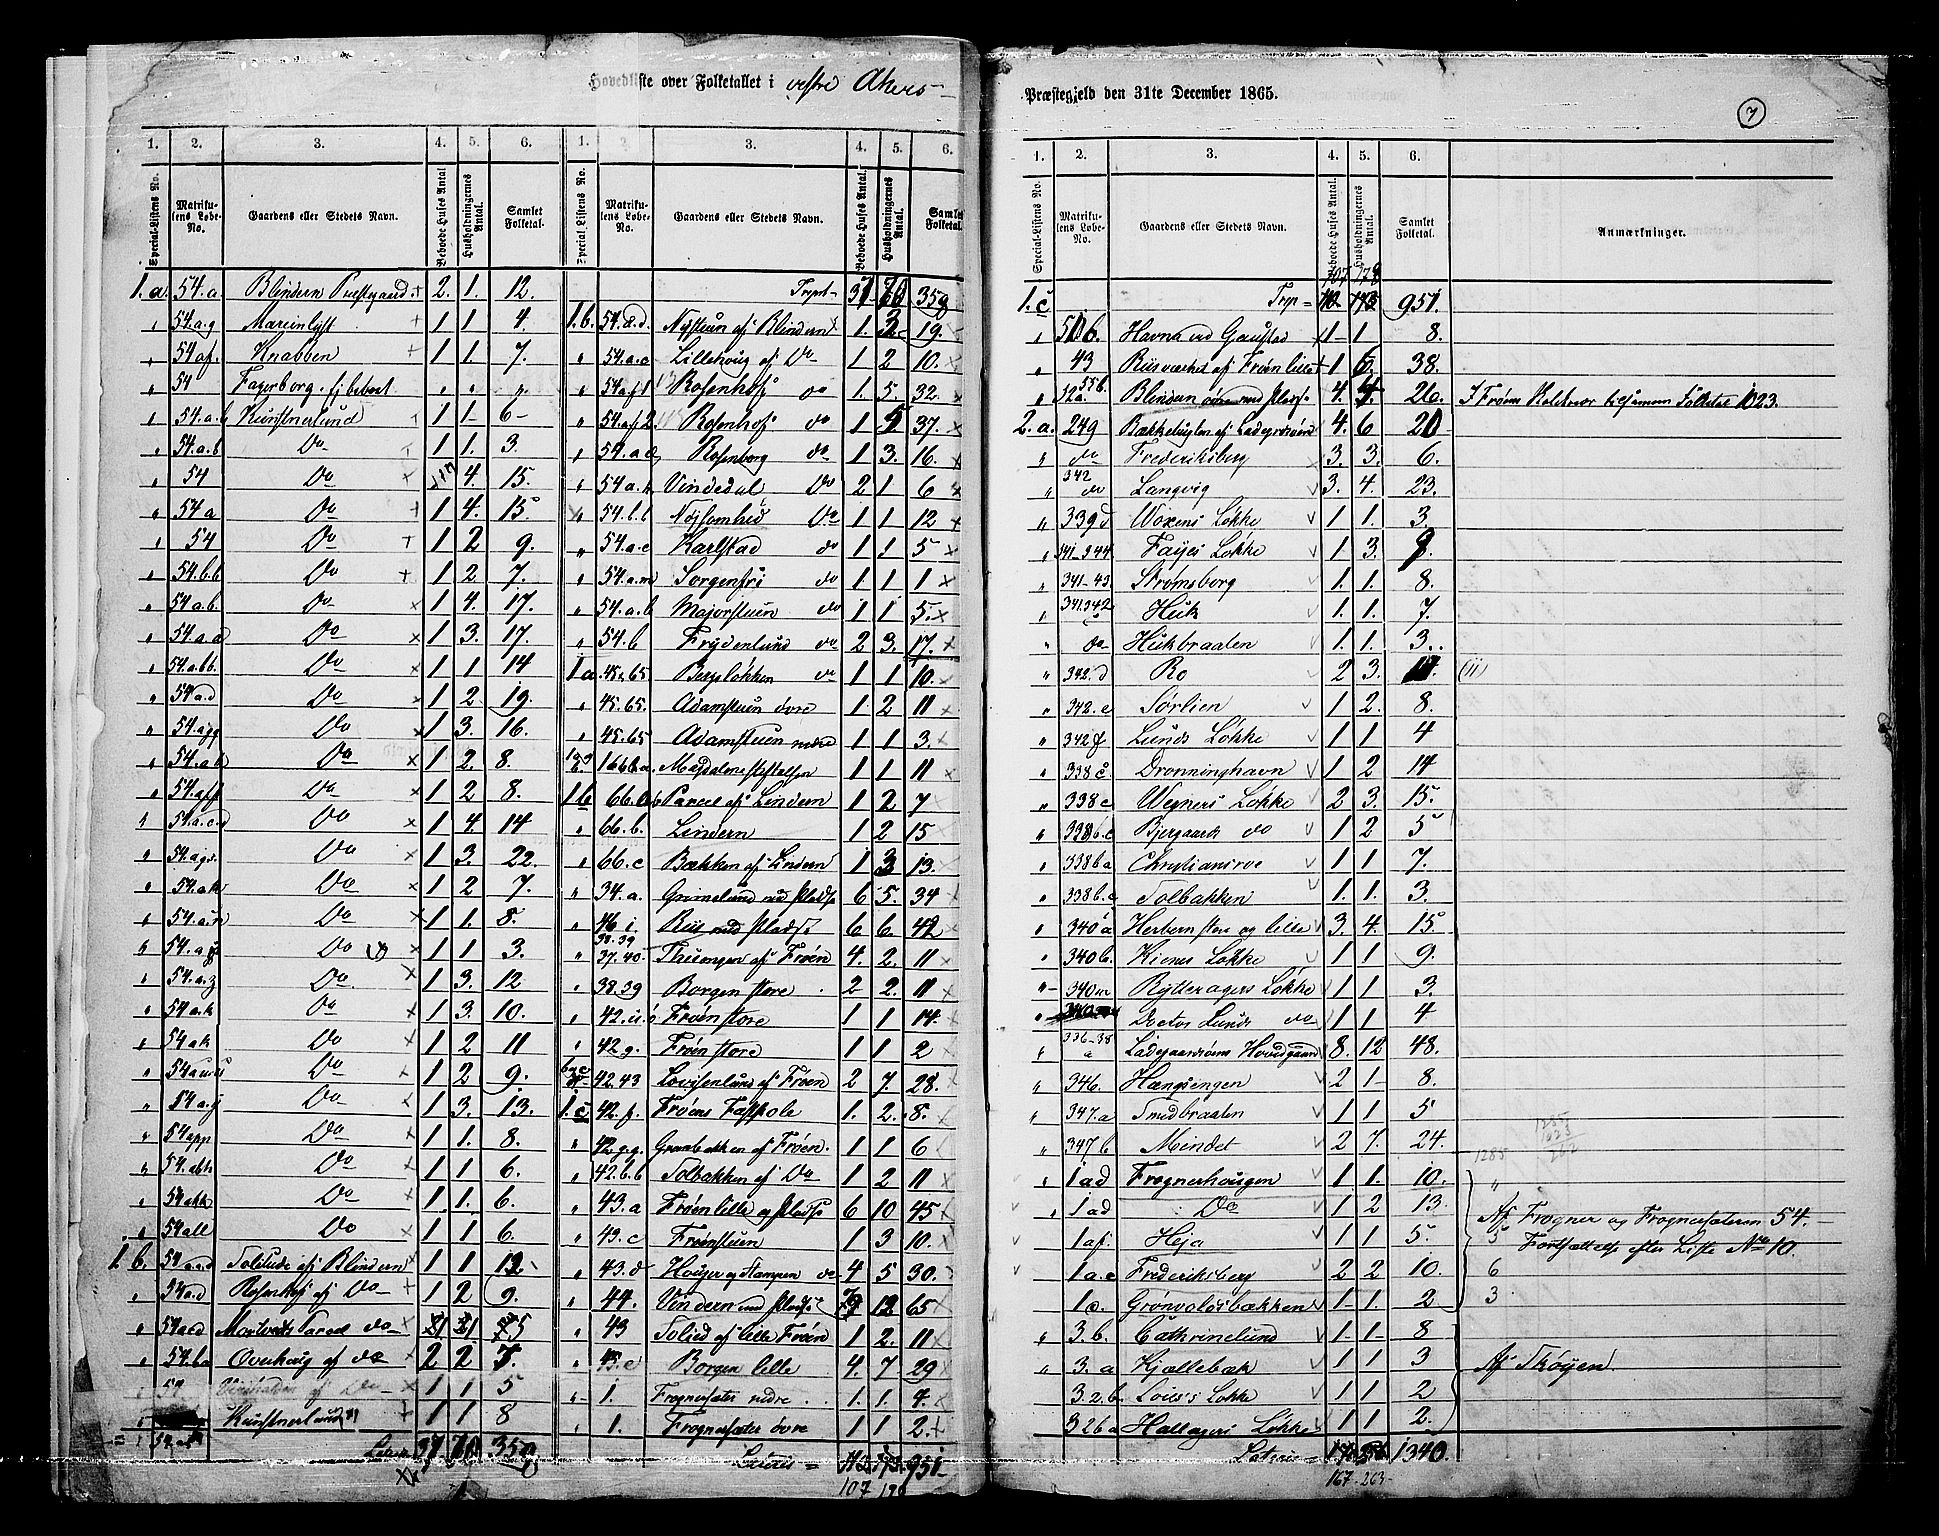 Hovedliste over Folketallet i vestre Akers
1. 2. 3. 4. 5. 6. 1. 2. 3. 4. 5. 6.
Special-Listens No. Matrikulens Løbe-No. Gaardens eller Stedets Navn. Beboede Huses Antal Husholdningernes Antal. Samlet Folketal. Special-Listens No. Matrikulens Løbe-No. Gaardens eller Stedets Navn. Beboede Huses Antal. Husholdningernes Antal. Samlet Folketal.
1.a. 54.a Blindern Præstgaard 2. 1. 12.
" 54.a.g Marienlyst 1 1 4.
" 54 af. Knabben 1 1. 7.
" 54 Fagerborg. ej bebort " " "
" 54.a.b Kunstnerlund 1 1 6
" 54.a.b Do 1 1. 3.
" 54 Do 4. 15.
" 54 a Do 1 4. 15.
" 54 Do 1 2 9.
" 54.b.b Do 1 2 7.
" 54 a.b. Do 1 4. 17.
" 54.a.a Do 1 3. 17.
" 54.a.bb. Do 1 1 14
" 54 a.d Do 1 2 19.
" 54.agg Do 1 3. 16.
" 54.ab Do 1 2. 8.
" 54.aff Do 1 2 8.
" 54.a.c.d Do 1 4. 14
" 54.ags. Do 1 3. 22.
" 54.ak Do 1 2 7.
" 54.a.n Do 1 1. 8.
" Do 1 1 3.
" 54.a.z Do 1 3. 12
" 54 a.k Do 1 3. 10.
" 54 ak Do 1 2 11
" Do 1 2 9.
" 54 a.y Do 1 3. 13.
" 54 app Do 1 1. 8.
" 54.ahh Do 1 1 6.
" 54 akk Do 1 1. 6.
" 54 all Do 1 1 6.
1.b. 54 aad Solitude af Blindern 1 1 12.
" 54 a.d Rosenhof af Do 1 2 9.
" 54 a.d Parcel do 5
" 54.ba Overhaug af do 2 2 7.
" 54. af Do 1 1 5
Kunstnerlund 1 1 8
Lateris 37 70 358
Trpt 37 70 358
1.b. 54.d.d. Nystuen af Blindern 1. 3 19.
" 54.a.c Lillehoug af Do 1 2 10.
" 54.a.f 1 Rosenhof do 1. 5. 32.
" 54.a.f 2 Rosenhof do 1 5 37.
" 54.a.e Rosenborg do 1 3. 16.
" 54.a.n Vindedal Do 2 1 6
" 54.b.b Nøjsomhed Do 1 1 12
" 54.a.c Karlstad do 1 1 5
" 54.a.m Sorgenfri do 1 1 1
" 54.a.b Majorstuen do 1 1 5.
" 54.b Frydenlund do 2 3. 17.
1.a. 45.65 Bergsløkken do 1 1 10.
" 45.65. Adamstuen øvre 1 2 11
" 45.65 Adamstuen nedre 1 1 3.
Magdalenestiftelsen 1 1 11
1.b 66.b Parcel af Lindern 1 2 7
" 66.b. Lindern 1 2 15
" 66.c Bækken af Lindern 1 3 13.
" 34.a. Grimelund med Pladse 6 5. 34
" 46 i. Riis med Pladse 6 6 42
" 38.39 37.40. Thusengen af Frøen 4. 2. 11
" 38.39 Borgen store 2 2. 11
" 42. Frøen store 1 1 14.
" 42.g. Frøen store 1 1 2
42.43 Lovisenlund af Frøen 2 7. 28.
1.c 42.f. Frøens Fastskole 1. 2. 8.
" 42.g.g. Grønbakken af Frøen. 1 1 6
" 42.b.b Solbakken af Do 1 2 11
" 43.a Frøen lille og Pladse 6 10 45
" 43.c Frønstuen 1 3 10.
" 43.d Houger og Stampen do 4 5 30.
" 44. Vindern med Pladse 12 65
" 43 Solied af lille Frøen 1 2. 11
" 43.c Borgen lille 4. 7 29
" 1. Frognersæter nedre 1. 1. 4.
" 1. Frognersæter øvre 1 1 2
Lateris 112 173. 951
107 178
Præstegjeld den 31te December 1865.
7
1. 2. 3. 4. 5. 6.
Special-Listens No. Matrikulens Løbe-No. Gaardens eller Stedets Navn. Beboede Huses Antal. Husholdningernes Antal. Samlet Folketal. Anmærkninger.
107 178
1.c Trp 112 173 951.
" 50b. Havna ved Gaustad 1 1 8.
" 43 Riisværket af Frøen lille 1 6 38.
" 52a. 55b. Blindern øvre med Pladse 4. 4. 26. I Frøens Kolekreds tilsammen Folketal 1023.
2.a. 249 Bækkehuglen af Ladegrdsøen 4. 6 20
" do Frederiksberg 3. 3. 6.
" 342 do Langvig 3. 4. 23.
" 339 d Woxens Løkke 1 1. 3.
" 341-344 Fayes Løkke 1 3. 9.
" 341-43 Strømsborg 1. 1. 8.
" 341.342 Huk 1. 1. 7.
" do Hukbraaten 1. 1. 3.
" 342.d Ro 2 3. 11. (11)
" 342.e Sørlien 1 2. 8.
" 342 f Lunds Løkke 1 1 4
" 338 c Dronninghavn 1 2 14
" 338 c Wegners Løkke 2 3. 15.
" 338 b.c Bjergaards do 1 2 5
" 338 b a Christiansroe 1 1 7.
" 338 b.a Solbakken 1. 1. 3.
" 340 a Herbern store og lille 3. 4. 15.
" 340 b. Kienes Løkke 1 1 9.
" 340 m Rytteragers Løkke 1 1 3.
" Doctor Lunds do 1 1 4
" 336-38 a Ladegaardsøens Hovedgaard 8. 12 48.
" 346. Hengsengen 2 1 8.
" 347.a Smedbraaten 1 1 5
" 347 b Mendet 2 7. 24.
" 1 ad Frognerhougen 1 1. 10. "
" 1 ad Do 1 2 13. Af Frogner og Frognersæteren 54.
1 af. Heja 1 1 5. 5 Fortsættelse efter Liste No 10.
" 1 a.e Frederiksberg 2 2 10. 6
1 c. Grønvoldsbakken 1 1. 2 3.
" 3.b. Cathrinelund 1 1 8
" 3.a Kjællebæk 1 1 3 Af Skøyen.
3.2.b Løkke 1 1 2
3 2b a Hallagers Løkke 1 1 2.
Lateris 1340.
167 263
1285
1023
262
1285